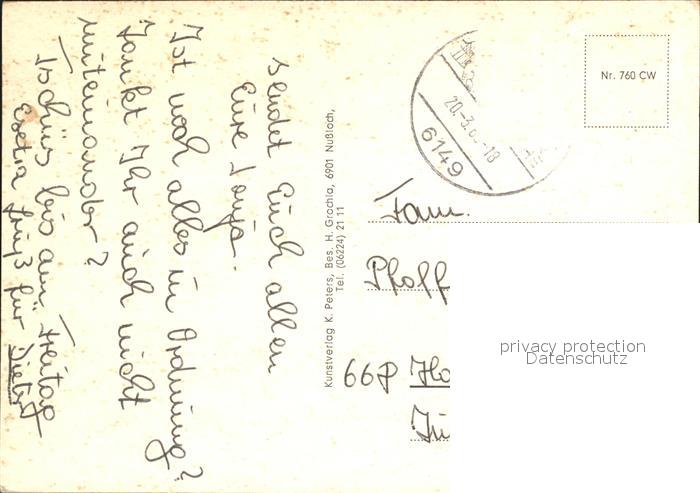 sendet Euch allen
Eure Tanja.
Ist noch alles in Ordnung?
Zankt Ihr auch nicht
miteinander?
Tschüs bis am Freitag
Extra Gruß für Dieter
Kunstverlag K. Peters, Bes. H. Grochla, 6901 Nußloch,
Tel. (06224) 21 11
20.-3.6 -18
6149
Nr. 760 CW
Fam.
Pfaff
668 Ho
privacy protection
Datenschutz